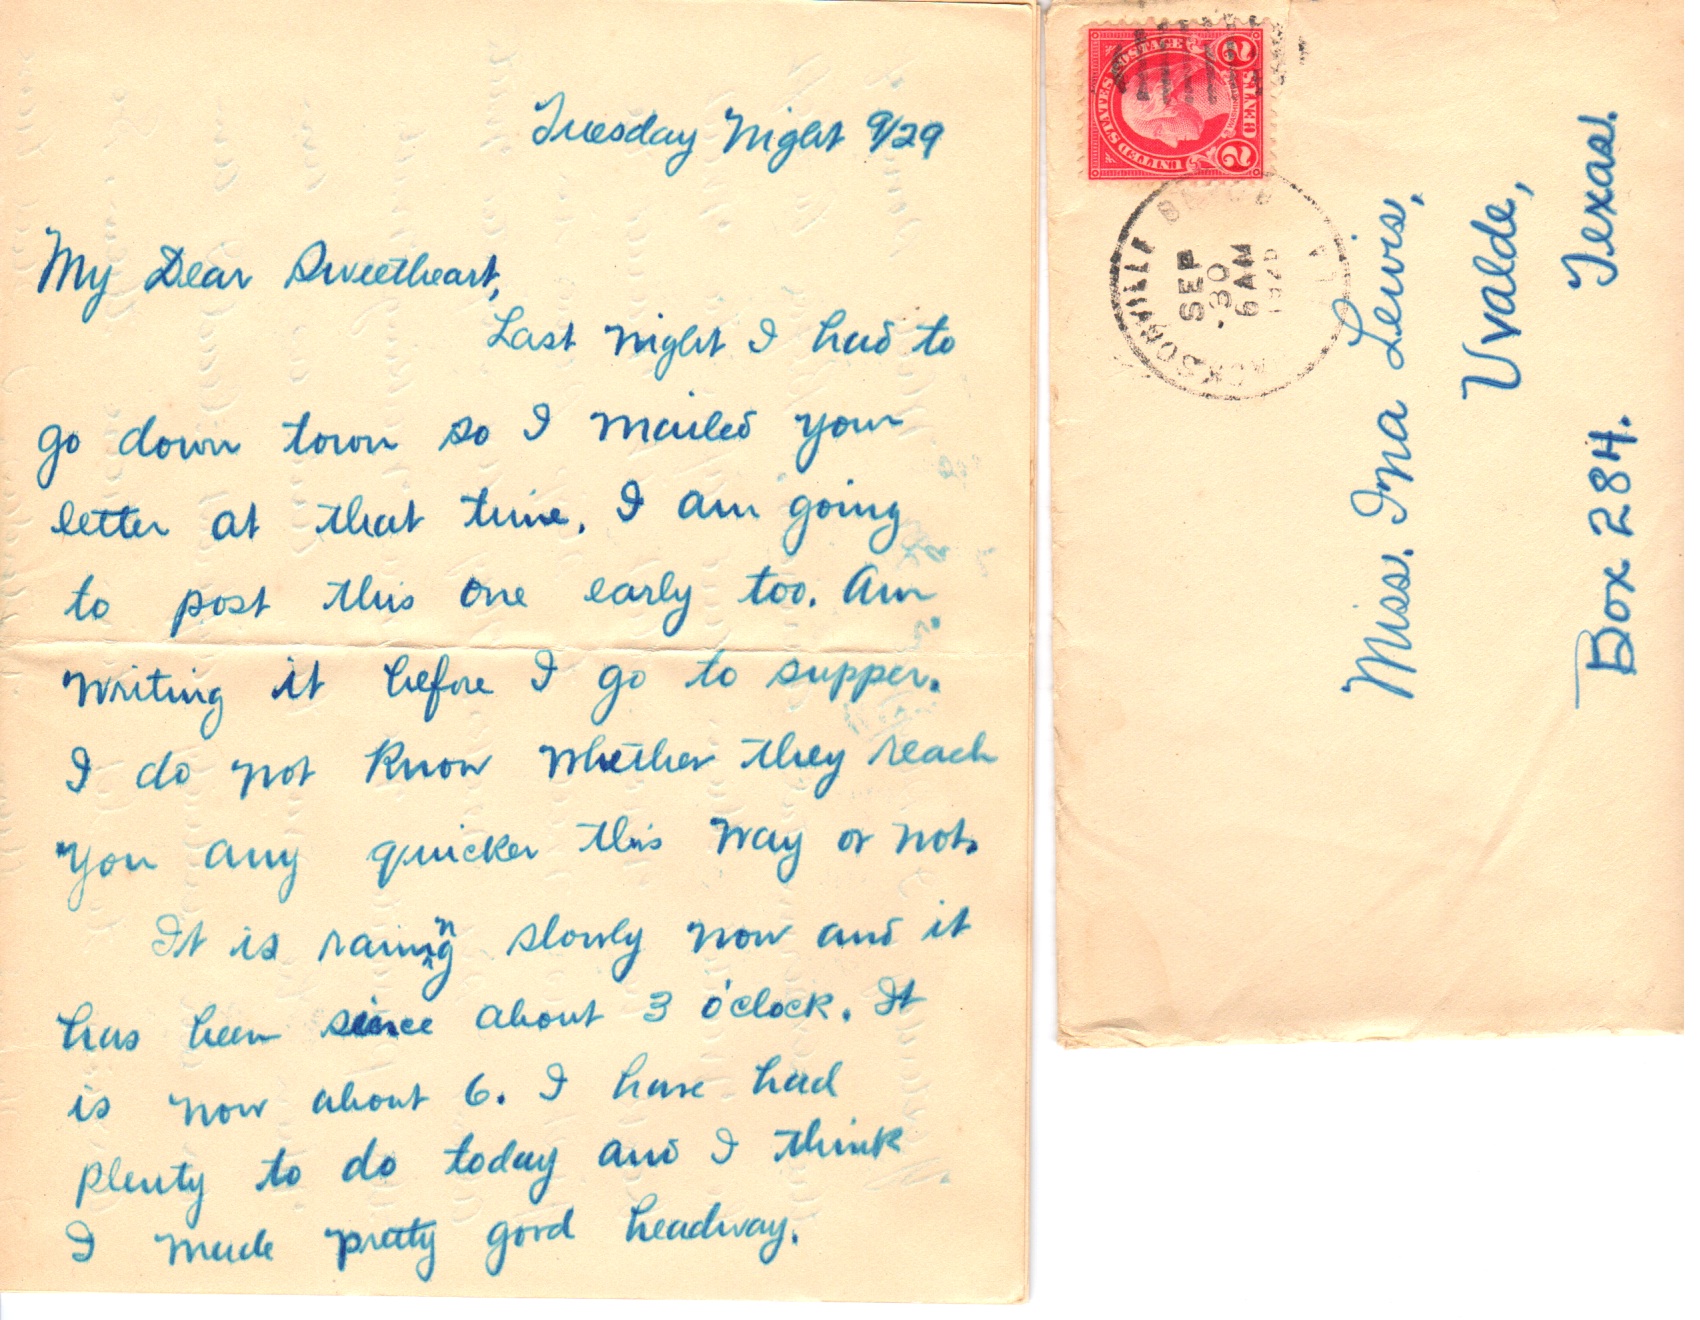 Tuesday Night 9/29
My Dear Sweetheart,
Last night I had to
go down town so I mailed your
letter at that time. I am going
to post this one early too. Am
writing it before I go to supper.
I do not know whether they reach
you any quicker this way or not.
It is raining slowly now and it
has been since about 3 o'clock. It
is now about 6. I have had
plenty to do today and I think
I made pretty good headway.
UNITED STATES POSTAGE
2 CENTS 2
SEP
30
6 AM
Miss. Ina Lewis,
Uvalde,
Box 284. Texas.